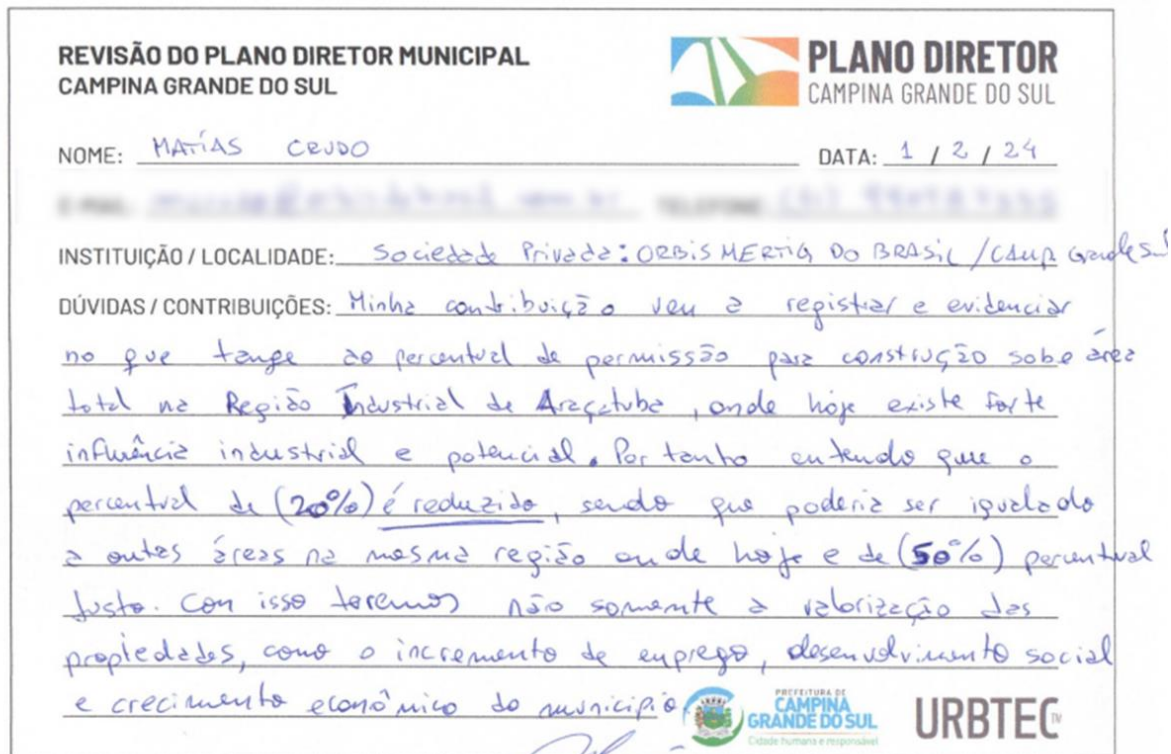 REVISÃO DO PLANO DIRETOR MUNICIPAL
CAMPINA GRANDE DO SUL
PLANO DIRETOR
CAMPINA GRANDE DO SUL
NOME: MATÍAS CRUDO DATA: 1 / 2 / 24
INSTITUIÇÃO / LOCALIDADE: Sociedade Privada: ORBIS MERTIG DO BRASIL / CAMP. Grande Sul
DÚVIDAS / CONTRIBUIÇÕES: Minha contribuição ven a registrar e evidenciar
no que tange ao percentual de permissão para construção sobe área
total na Região Industrial de Araçatuba, onde hoje existe forte
influência industrial e potencial. Por tanto entendo que o
percentual de (20%) é reduzido, sendo que poderia ser igualado
a outas áreas na mesma região onde hoje e de (50%) percentual
justo. Con isso teremos não somente a valorização das
propiedades, como o incremento de enprego, desenvolvimento social
e crecimento econômico do municipio
PREFEITURA DE
CAMPINA
GRANDE DO SUL
Cidade humana e responsável
URBTEC TM